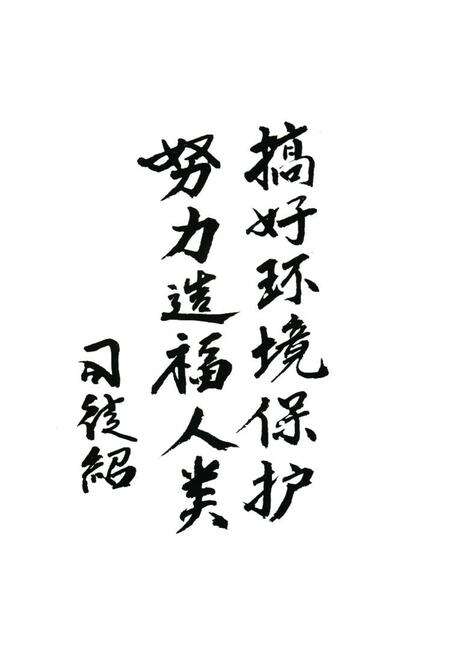 搞好环境保护
努力造福人类
司徒紹